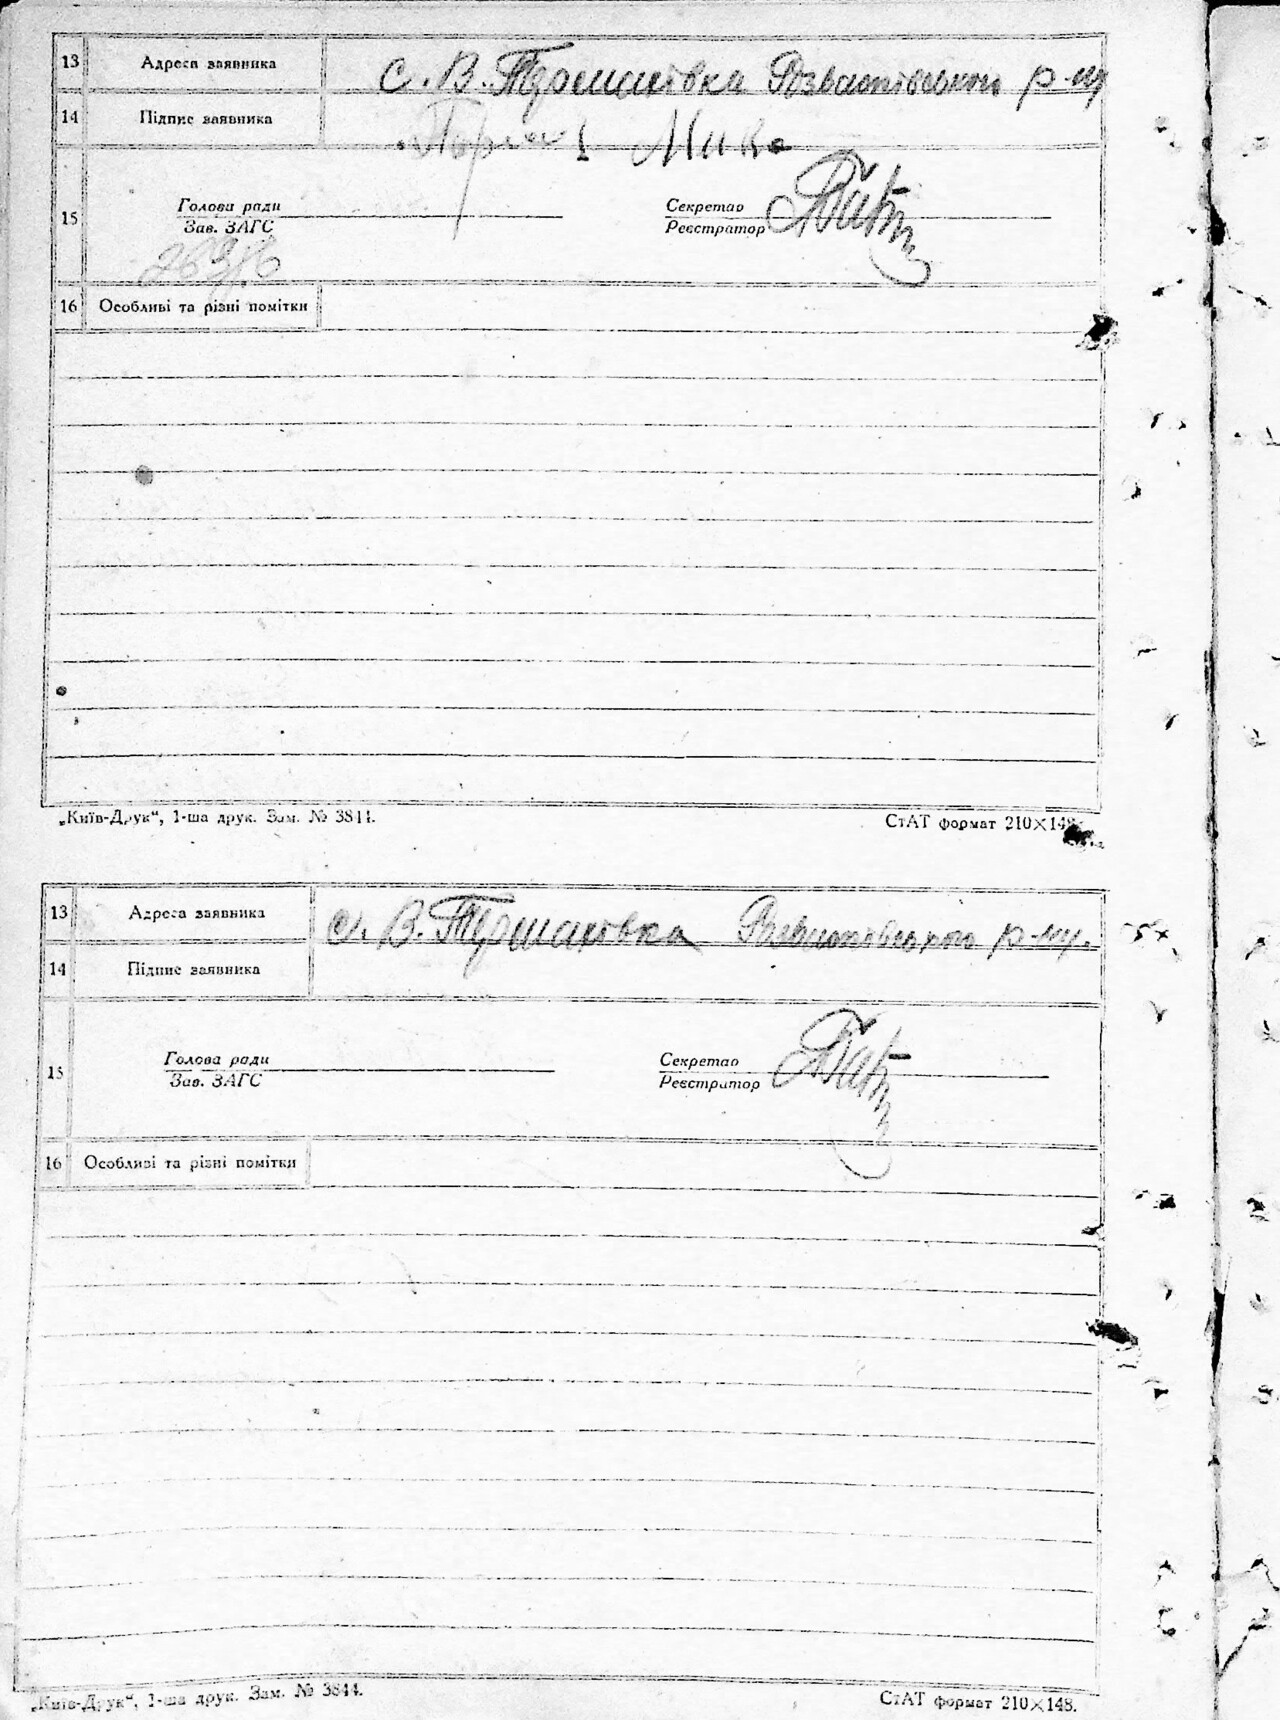 13 Адреса заявника с. В. Термахівка Розважівського р-ну
14 Підпис заявника
15 Голова ради Секретар
Зав. ЗАГС Реєстратор
16 Особливі та різні помітки
„Київ-Друк“, 1-ша друк. Зам. № 3844. СтАТ формат 210×148.
13 Адреса заявника с. В. Термахівка Розважівського р-ну.
14 Підпис заявника
15 Голова ради Секретар
Зав. ЗАГС Реєстратор
16 Особливі та різні помітки
„Київ-Друк“, 1-ша друк. Зам. № 3844. СтАТ формат 210×148.